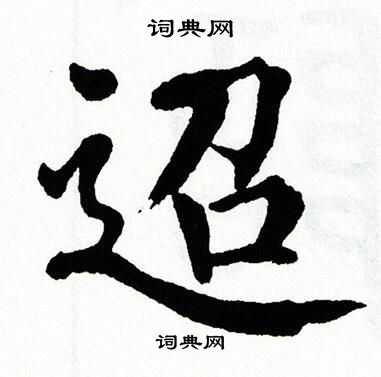 词典网
迢
词典网